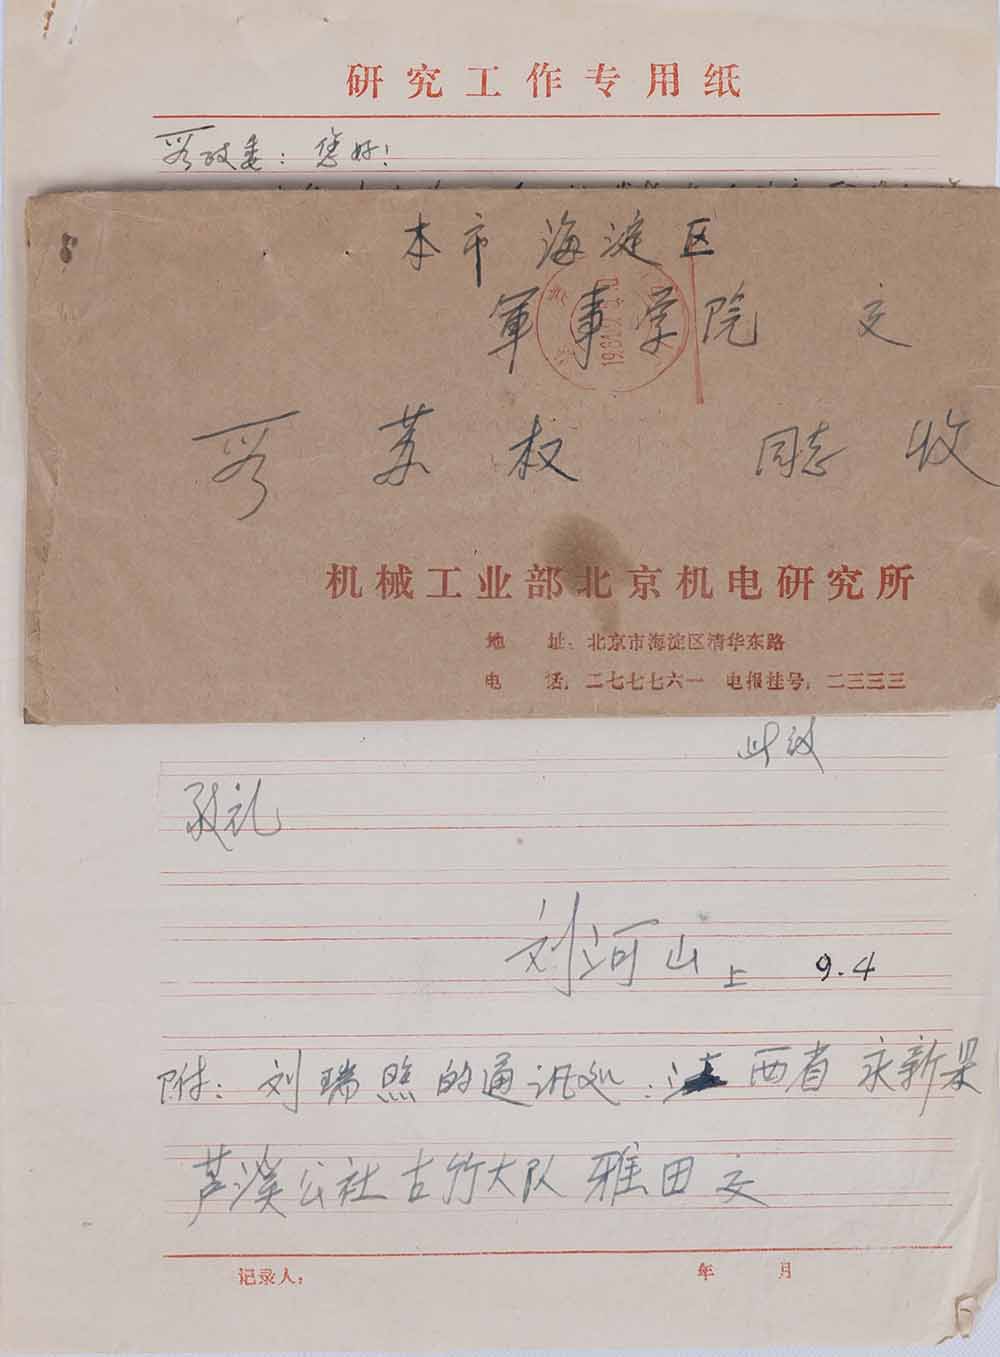 研究工作专用纸
段政委：您好！
本市海淀区
軍事学院 交
段苏权 同志 收
机械工业部北京机电研究所
地 址：北京市海淀区清华东路
电 话：二七七七六一 电报挂号：二三三三
此致
敬礼
刘河山 上 9.4
附：刘瑞照的通讯处：江西省永新县
芦溪公社古竹大队雅田交
记录人： 年 月